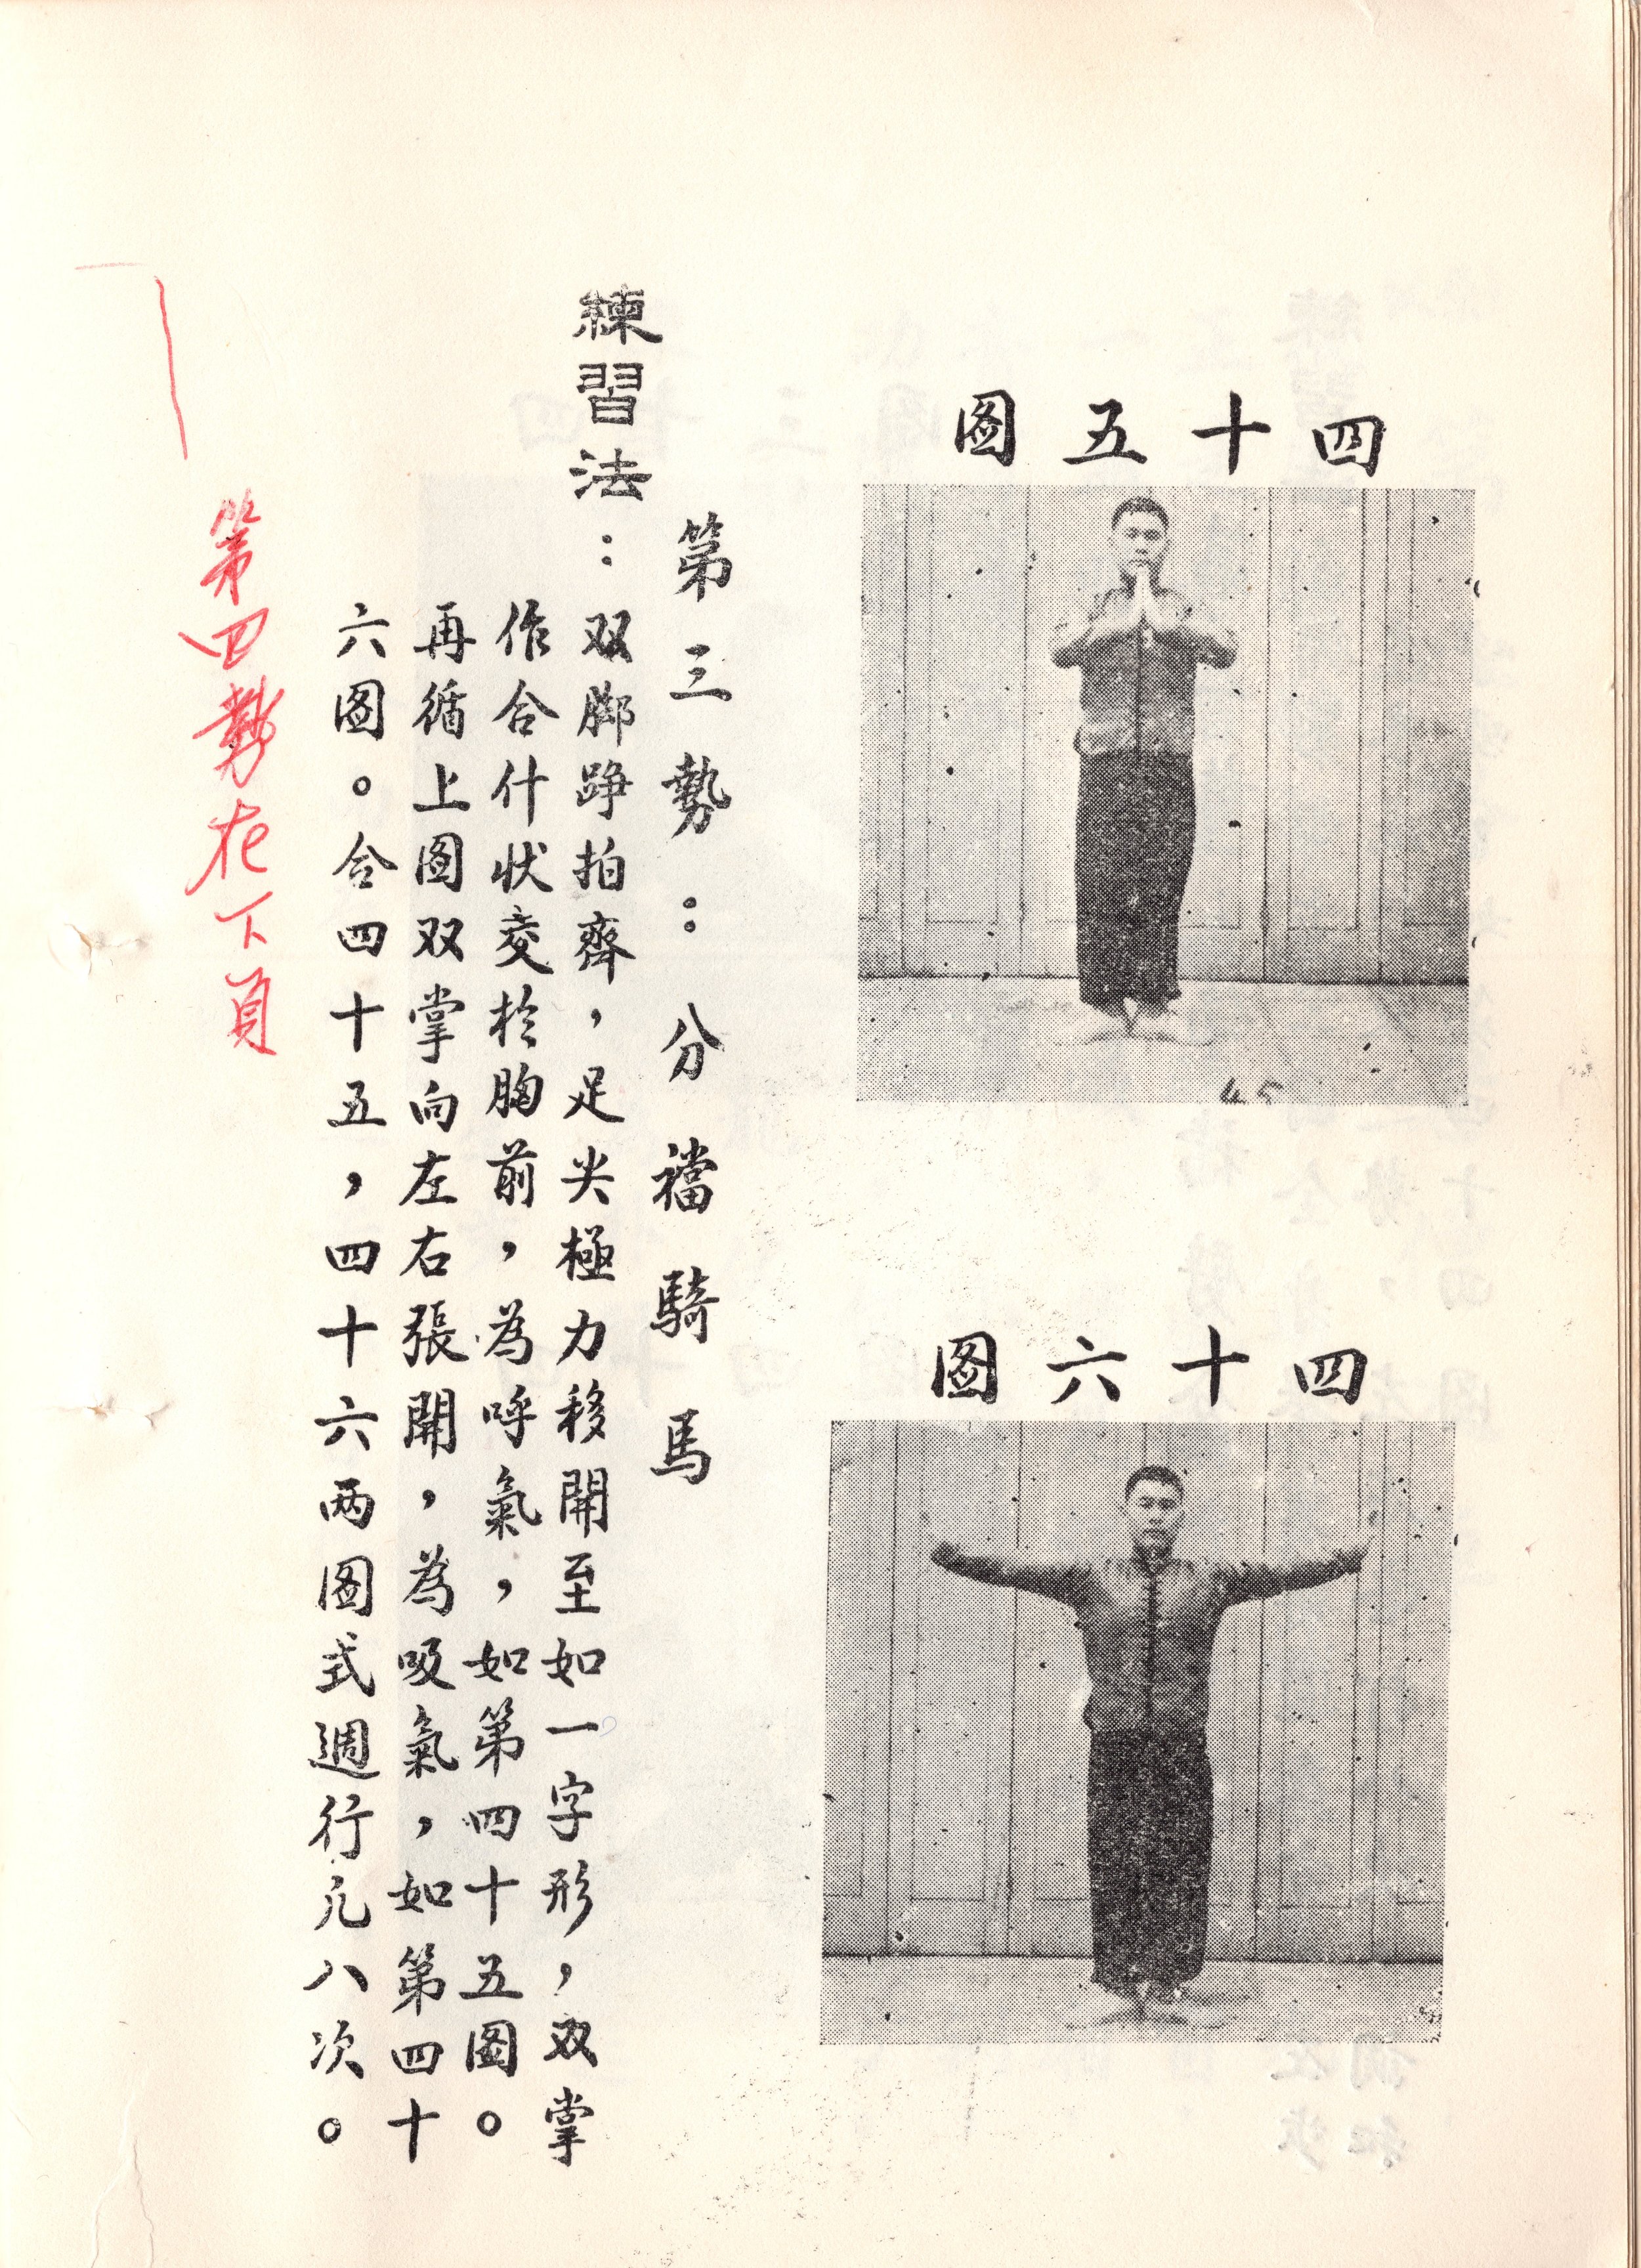 四十五圖
45
四十六圖
第三勢：分襠騎馬
練習法：双脚踭拍齊，足尖極力移開至如一字形，双掌
作合什状交於胸前，為呼氣，如第四十五圖。
再循上圖双掌向左右張開，為吸氣，如第四十
六圖。合四十五，四十六两圖式週行凢八次。
第四勢在下頁